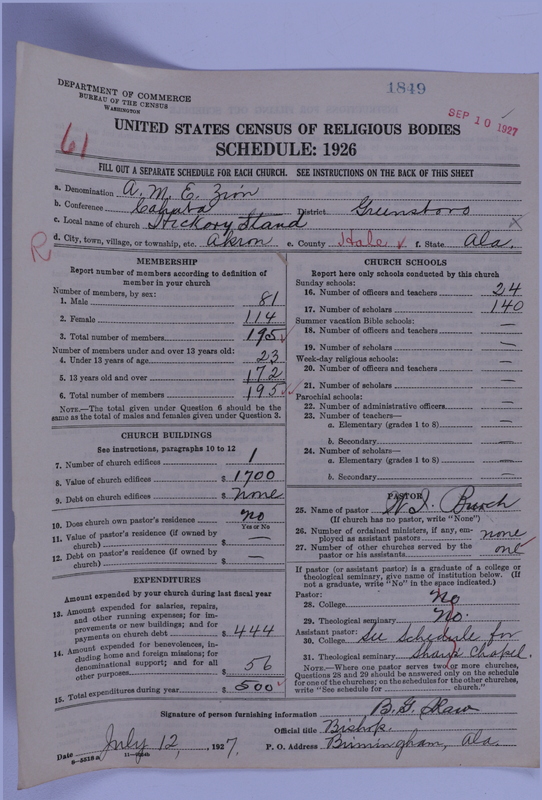 1849
DEPARTMENT OF COMMERCE
BUREAU OF THE CENSUS
WASHINGTON
SEP 10 1927
61
UNITED STATES CENSUS OF RELIGIOUS BODIES
SCHEDULE: 1926
FILL OUT A SEPARATE SCHEDULE FOR EACH CHURCH. SEE INSTRUCTIONS ON THE BACK OF THIS SHEET
a. Denomination A. M. E. Zion
b. Conference Cahaba District Greensboro
c. Local name of church Hickory Stand
R
d. City, town, village, or township, etc. Akron e. County Hale f. State Ala.
MEMBERSHIP
Report number of members according to definition of
member in your church
Number of members, by sex:
1. Male 81
2. Female 114
3. Total number of members 195
Number of members under and over 13 years old:
4. Under 13 years of age 23
5. 13 years old and over 172
6. Total number of members 195
NOTE.—The total given under Question 6 should be the
same as the total of males and females given under Question 3.
CHURCH BUILDINGS
See instructions, paragraphs 10 to 12
7. Number of church edifices 1
8. Value of church edifices $ 1700
9. Debt on church edifices $ none
10. Does church own pastor's residence No
Yes or No
11. Value of pastor's residence (if owned by
church) $ —
12. Debt on pastor's residence (if owned by
church) $ —
EXPENDITURES
Amount expended by your church during last fiscal year
13. Amount expended for salaries, repairs,
and other running expenses; for im-
provements or new buildings; and for
payments on church debt $ 444
14. Amount expended for benevolences, in-
cluding home and foreign missions; for
denominational support; and for all
other purposes $ 56
15. Total expenditures during year $ 500
CHURCH SCHOOLS
Report here only schools conducted by this church
Sunday schools:
16. Number of officers and teachers 24
17. Number of scholars 140
Summer vacation Bible schools:
18. Number of officers and teachers —
19. Number of scholars —
Week-day religious schools:
20. Number of officers and teachers —
21. Number of scholars —
Parochial schools:
22. Number of administrative officers —
23. Number of teachers—
a. Elementary (grades 1 to 8) —
b. Secondary —
24. Number of scholars—
a. Elementary (grades 1 to 8) —
b. Secondary —
PASTOR
25. Name of pastor Burch
(If church has no pastor, write "None")
26. Number of ordained ministers, if any, em-
ployed as assistant pastors none
27. Number of other churches served by the
pastor or his assistants one
If pastor (or assistant pastor) is a graduate of a college or
theological seminary, give name of institution below. (If
not a graduate, write "No" in the space indicated.)
Pastor:
28. College No
29. Theological seminary No.
Assistant pastor:
30. College See Schedule for
31. Theological seminary Sharp Chapel.
NOTE.—Where one pastor serves two or more churches,
Questions 28 and 29 should be answered only on the schedule
for one of the churches; on the schedules for the other churches,
write "See schedule for church."
Signature of person furnishing information B. G. Shaw
Official title Bishop.
Date July 12, 1927. P. O. Address Birmingham, Ala.